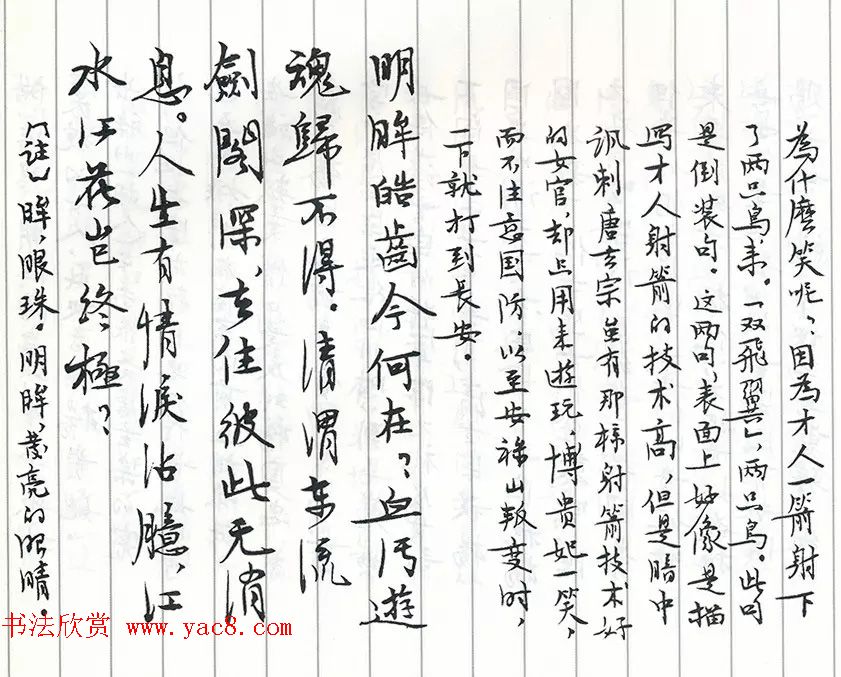 為什麼笑呢？因為才人一箭射下
了两只鸟来。「双飛翼」，两只鸟。此句
是倒装句。这两句，表面上好像是描
写才人射箭的技术高，但是暗中
讽刺唐玄宗虽有那样射箭技术好
的女官，却只用来遊玩，博貴妃一笑，
而不注意国防，以至安祿山叛变时，
一下就打到長安。
明眸皓齒今何在？血污遊
魂歸不得。清渭东流
劍閣深，去住彼此无消
息。人生有情淚沾臆，江
水江花岂终極？
〔註〕眸，眼珠。明眸，发亮的眼睛。
书法欣赏 www.yac8.com